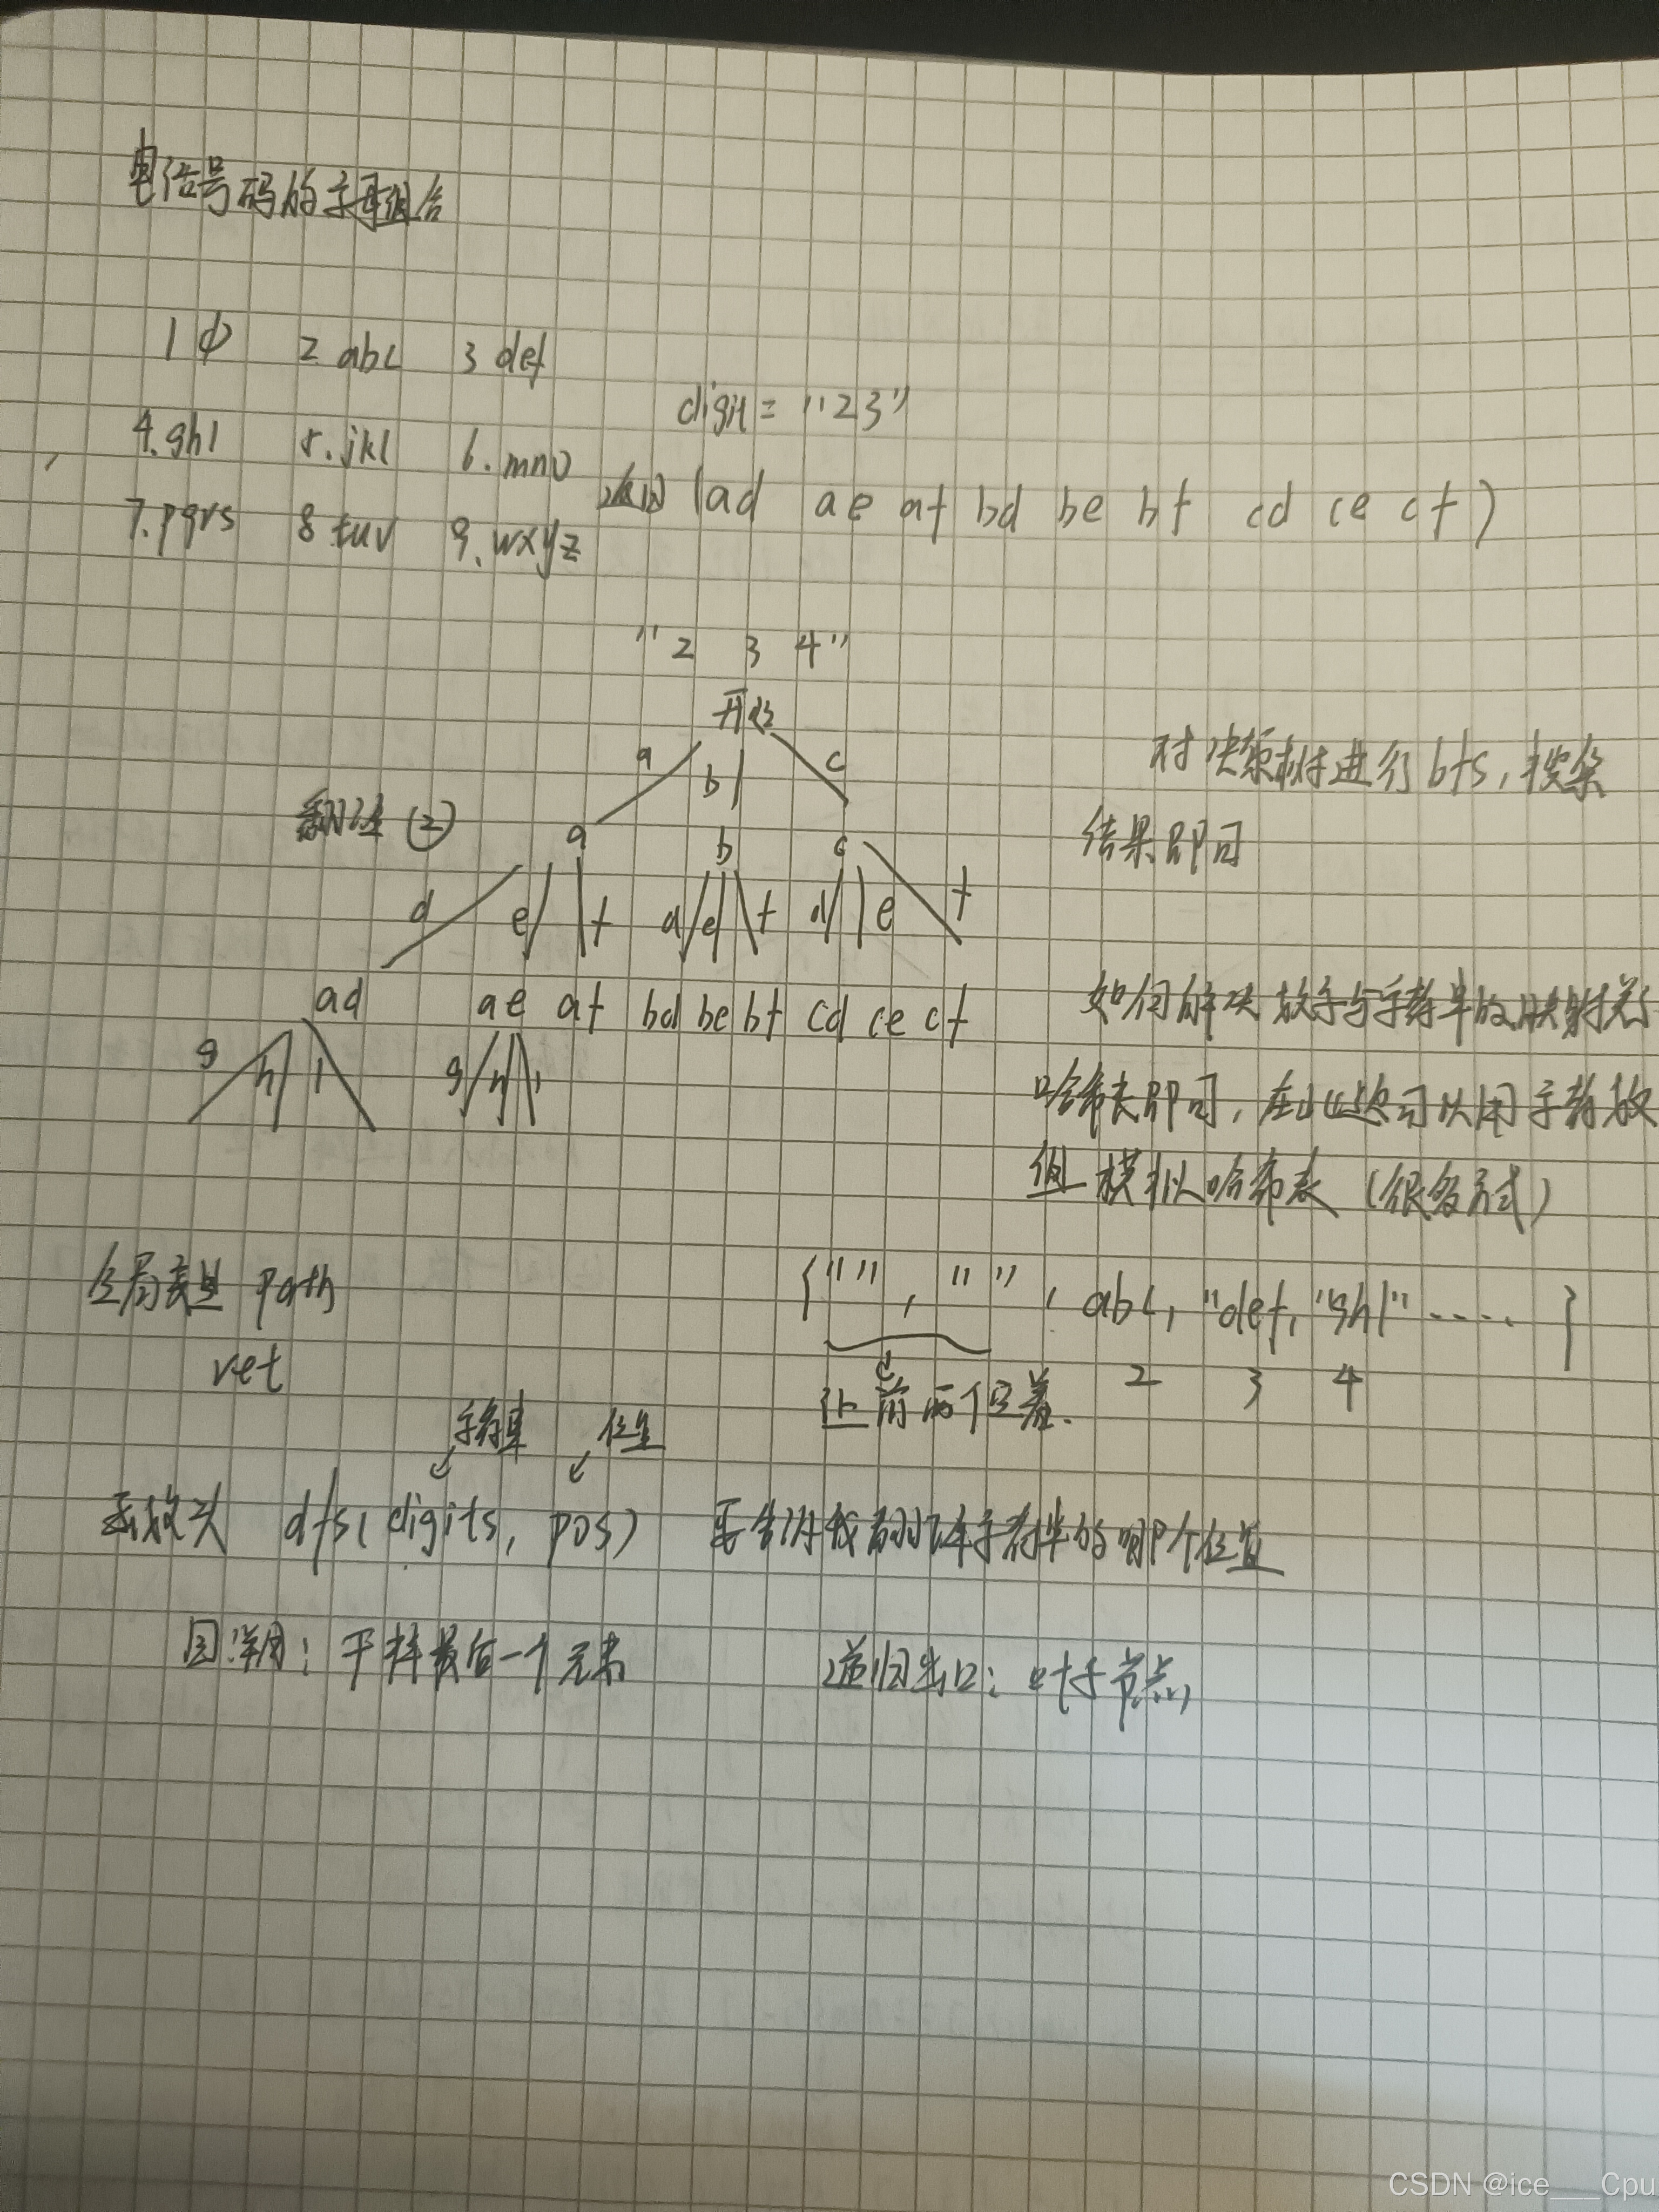 电话号码的字母组合
1 ф 2 abc 3 def
digit = "23"
4.ghi 5.jkl 6.mno
返回 (ad ae af bd be bf cd ce cf)
7.pqrs 8 tuv 9.wxyz
"2 3 4"
开始
a b c
对决策树进行bfs,搜索
结果即可
(2)
a b c
d e f d e f d e f
ad ae af bd be bf cd ce cf
g h i g h i
如何解决数字与字符串的映射关
哈希表即可,在此还可以用字符数
组模拟哈希表(很多方式)
全局变量 path
ret
{"", "", abc, "def, "ghi" ..... }
2 3 4
让前两个空着.
字符串 位置
函数头 dfs(digits, pos) 要告诉我 字符串的哪个位置
回溯:干掉最后一个元素
递归出口:叶子节点
CSDN @ice___Cpu